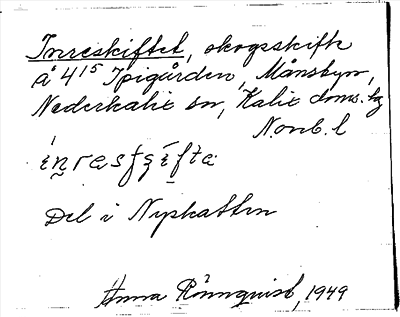 Inreskiftet, skogsskifte
å 4¹⁵ Spigården, Månsbyn,
Nederkalix sn, Kalix doms. tg
Norrb. l
Del i Nyskatten
Anna Rönnquist, 1949